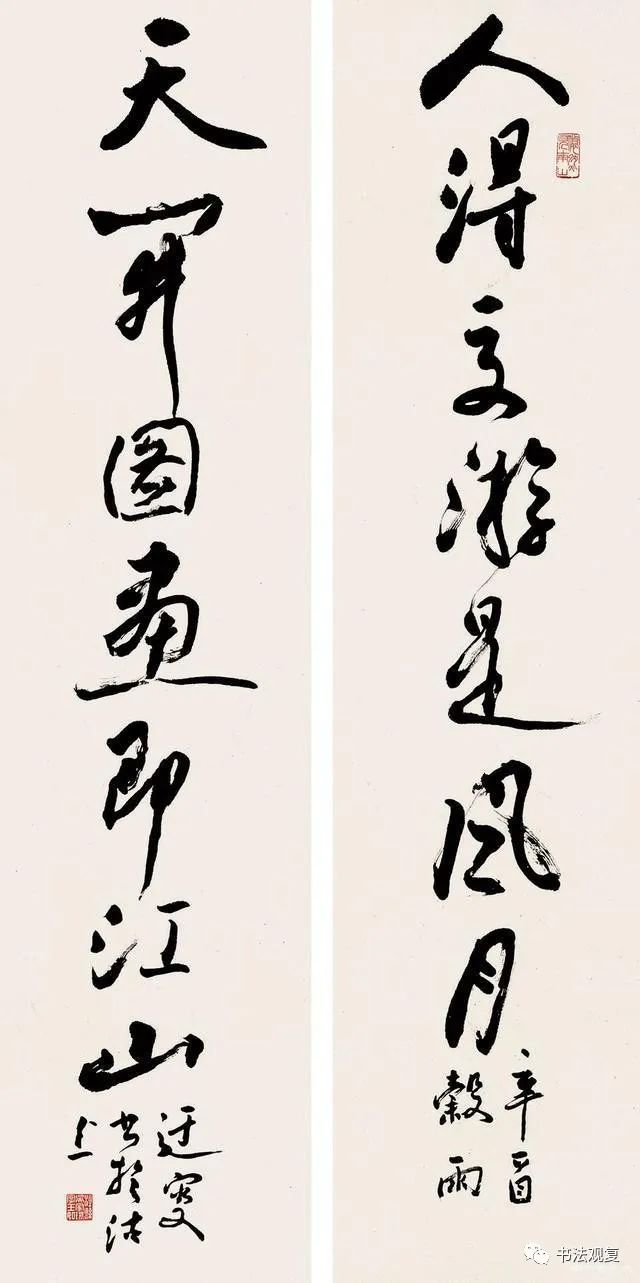 人得交游是风月
辛酉
穀雨
天开图画即江山
迂叟
书于沽
上
书法观复